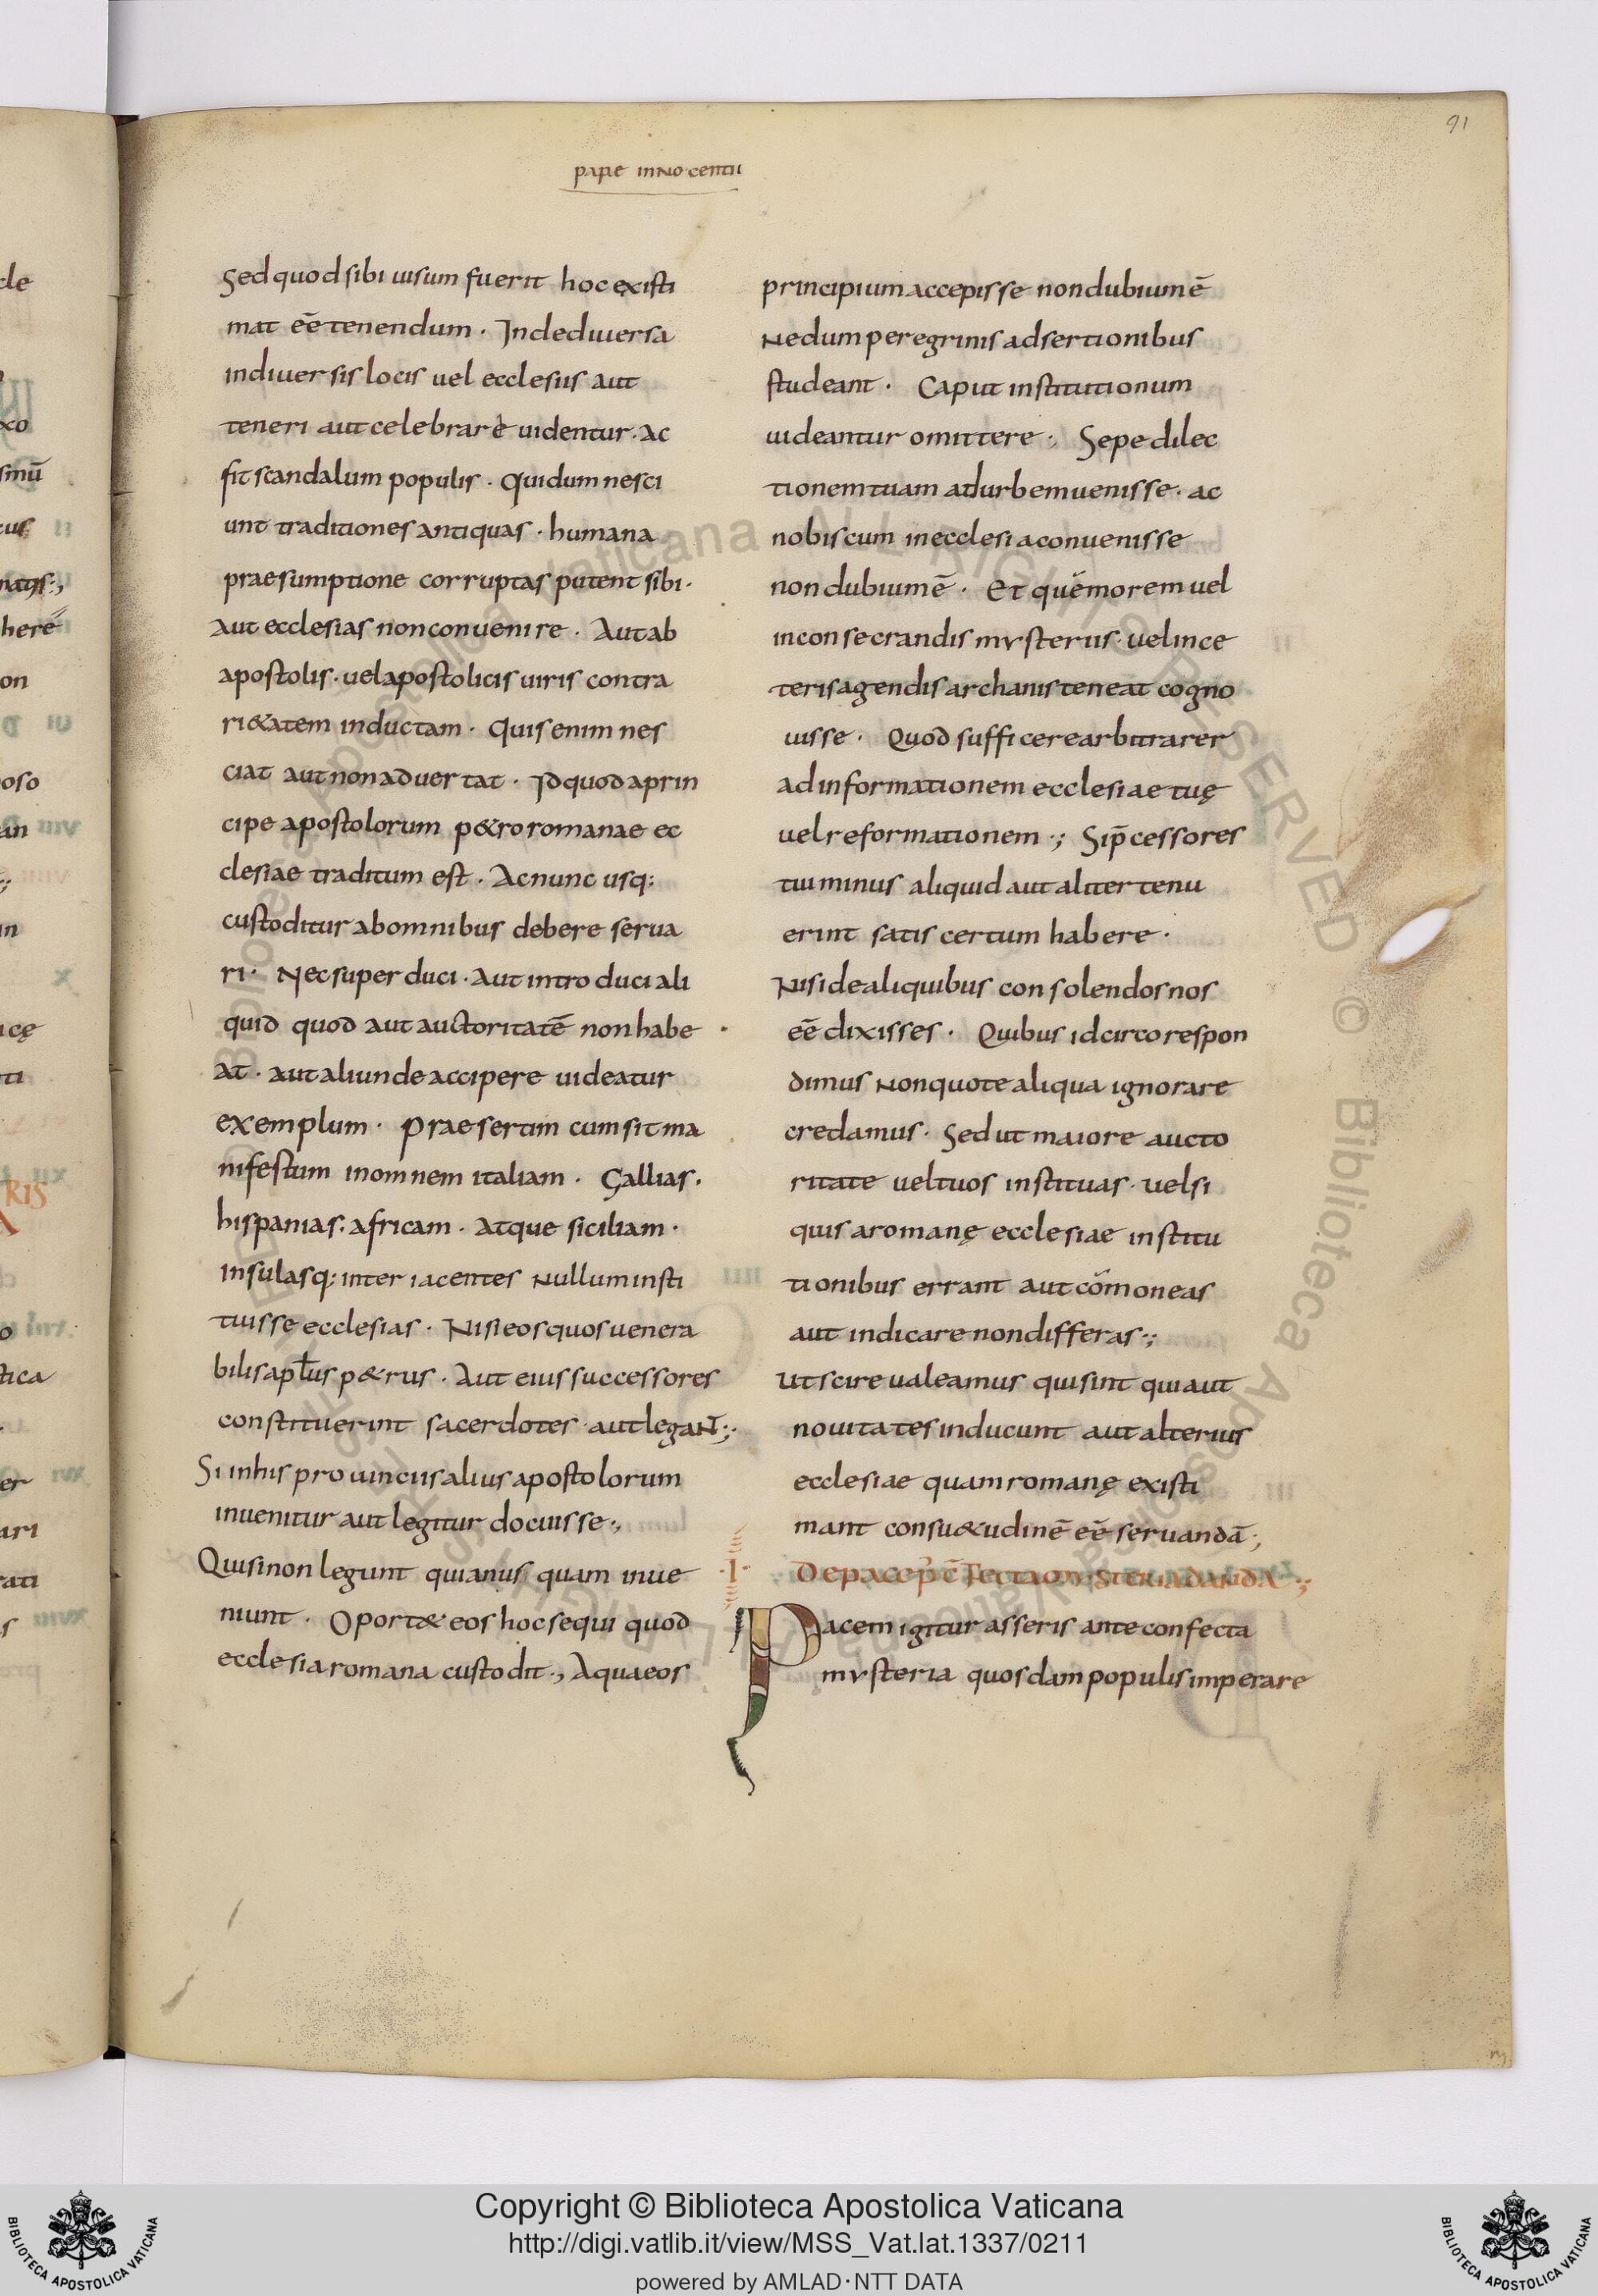 91
pape innocentii
Sed quod sibi uisum fuerit hoc exısti
mat eē tenendum. Inde diuersa
in diuersis locis uel ecclesiis aut
teneri aut celebrare uidentur. Ac
fit scandalum populis. Qui dum nesci
unt traditiones antiquas. humana
praesumptione corruptas putent sibi.
Aut ecclesias non conuenire. Aut ab
apostolis. uel apostolicis uiris contra
ri&atem inductam. Quis enim nes
ciat aut non aduertat. Id quod a prin
cipe apostolorum p&ro romanae ec
clesiae traditum est. Ac nunc usq:
custoditur ab omnibus debere serua
ri. Nec super duci. Aut intro duci ali
quid quod aut auctoritatē non habe
at. aut aliunde accipere uideatur
exemplum. Praesertim cum sit ma
nifestum in omnem italiam. Gallias.
hispanias. africam. Atque siciliam.
Insulasq: inter iacentes Nullum insti
tuisse ecclesias. Nisi eos quos uenera
bilis aptlus p&rus. Aut eius successores
constituerint sacerdotes aut legaNT:;.
Si in his prouinciis alius apostolorum
inuenitur aut legitur docuisse.,
Qui si non legunt quia nusquam inue
niunt. Oport& eos hoc sequi quod
ecclesia romana custodit., A qua eos
principium accepisse non dubium ē
Ne dum peregrinis adsertionibus
studeant. Caput institutionum
uideantur omittere., Sepe dilec
tionem tuam ad urbem uenisse. ac
nobiscum in ecclesia conuenisse
non dubium ē. Et quem morem uel
in consecrandis mysteriis. uel in ce
teris agendis archanis teneat cogno
uisse. Quod sufficere arbitrarer
ad informationem ecclesiae tuę
uel reformationem.; Si p̄cessores
tui minus aliquid aut aliter tenu
erint satis certum habere.
Nisi de aliquibus consolendos nos
eē dixisses. Quibus idcirco respon
dimus Non quo te aliqua ignorare
credamus. Sed ut maiore aucto
ritate uel tuos instituas. uel si
qui s a romanę ecclesiae institu
tionibus errant aut cōmoneas
aut indicare non differas:;
Ut scire ualeamus qui sint qui aut
nouitates inducunt aut alterius
ecclesiae quam romanę existi
mant consu&udinē eē seruandā;
.I.
Pacem igitur asseris ante confecta
mysteria quosdam populis imperare
Copyright © Biblioteca Apostolica Vaticana
http://digi.vatlib.it/view/MSS_Vat.lat.1337/0211
powered by AMLAD·NTT DATA
BIBLIOTECA APOSTOLICA VATICANA
BIBLIOTECA APOSTOLICA VATICANA